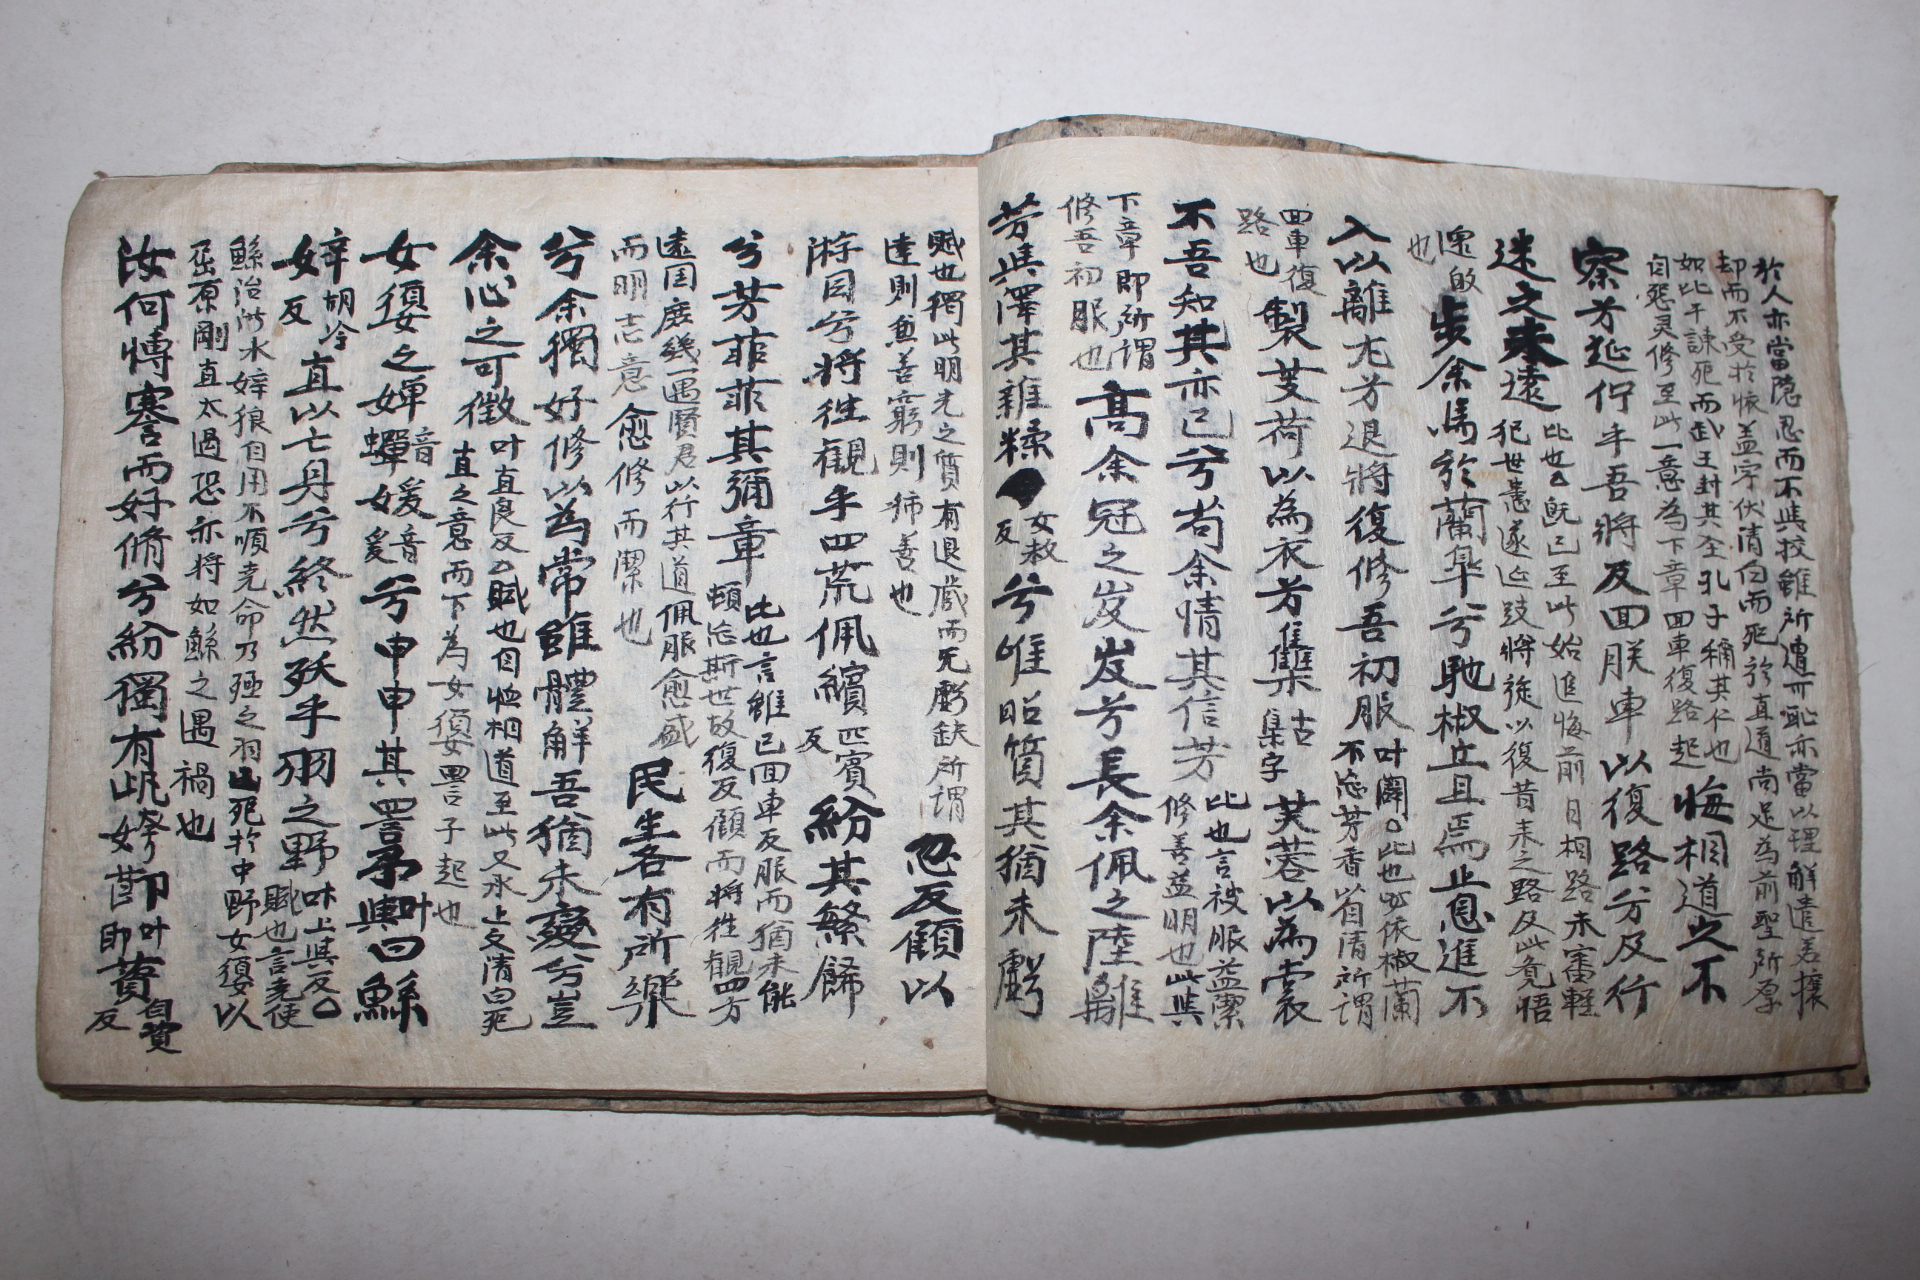 於人亦當隐忍而不與校雖所遭可恥亦當以理解遣若攘
却而不受於懷盖字伏清白而死於直道尚足為前聖所厚
如比干諫死而武王封其仝孔子稱其仁也
自怨灵修至此一意為下章回車復路起
悔相道之不
察兮延佇乎吾將反回朕車以復路兮及行
迷之未遠
比也○旣已至此始追悔前日相路未審輕
犯世患遂延跂將旋以復昔来之路及此覓悟
還的
也
步余馬於蘭臯兮馳椒丘且焉止息進不
入以離尤兮退將復修吾初服
叶闢○比也必依椒蘭
不忘芳香以自清所謂
回車復
路也
製芰荷以為衣兮集
古
集字
芙蓉以為裳
不吾知其亦已兮苟余情其信芳
比也言被服益潔
修善益明也此與
下章即所謂
修吾初服也
髙余冠之岌岌兮長余佩之陸離
芳與澤其雜糅
女救
反
兮唯昭質其猶未虧
賦也獨此明光之質有退藏而无虧缺所謂
達則兼善窮則独善也
忍反顧以
游目兮將徃觀乎四荒佩繽
匹賓
反
紛其繁餙
兮芳菲菲其彌章
比也言雖已回車反服而猶未能
頓忘斯世故復反顧而將徃觀四方
遠国庶幾一遇賢君以行其道佩服愈盛
而明志意愈修而潔也
民生各有所樂
兮余獨好修以為常雖體解吾猶未變兮豈
余心之可徵
叶直良反○賦也自怕相道至此又承上文清白死
直之意而下為女須詈予起也
女須之嬋
音
蟬
媛
音
爰
兮申申其詈予
叶
與
曰鯀
婞
胡冷
反
直以亡身兮終然殀乎羽之野
叶上與反○
賦也言堯使
鯀治洪水婞狼自用不順堯命乃殛之羽山死於中野女須以
屈原剛直太過恐亦將如鯀之遇禍也
汝何博謇而好脩兮紛獨有此姱節
叶
即
薋
自資
反